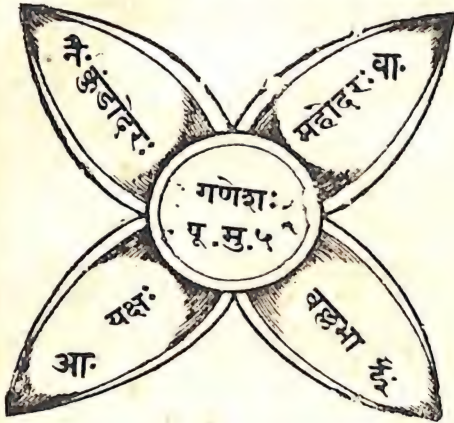 नै. कुंडोदरः
महोदरः वा.
गणेशः
पू. मु. ५
आ. यक्षः
वल्लभा